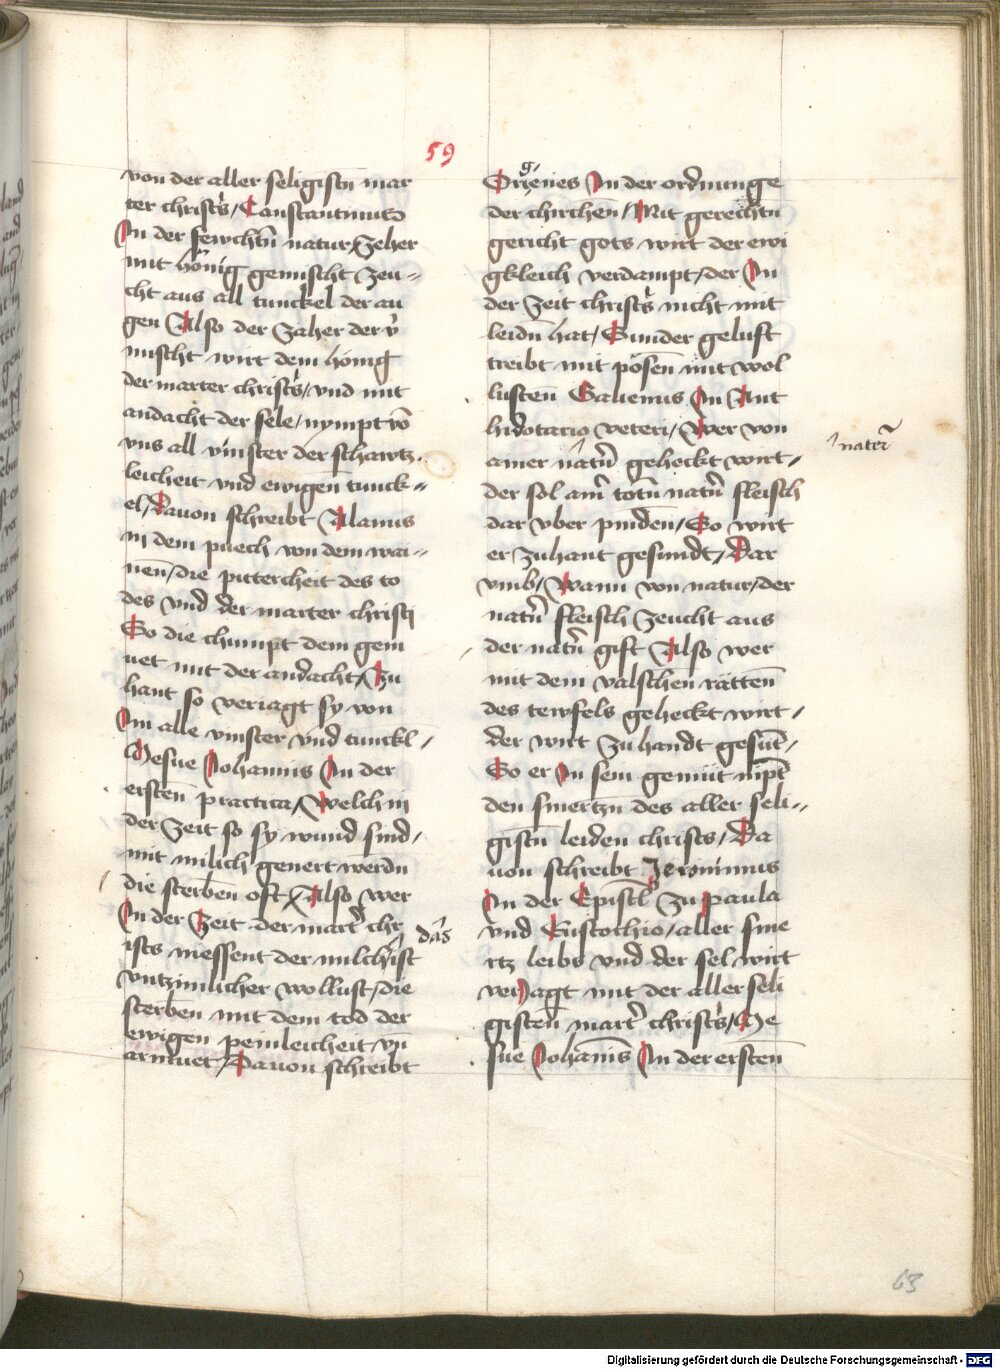 59
von der aller seligistn̄ mar
ter christꝭ / Constantinus
In der fewchtn̄ natur / Zeher
mit hönig gemischt zeu-
cht aus all tunckel der au
gen Also der zaher der v̄
mischt wirt dem hönig
der marter christꝭ / vnd mit
andacht der sele / nympt vō
vns all vinster der schwartz
leicheit vnd ewigen tunck-
el / Dauon schreibt Alanus
in dem puech von dem wai-
nen / die pittercheit des to
des vnd der marter christi
So die chumpt dem gem
uet mit der andacht / Zu
hant so veriagt sy von
Im alle vinster vnd tunckl /
Mesue Johannis In der
ersten practica / Welch in
der Zeit so sy wund sind /
mit milich genert werdn̄
die sterben oft / Also wer
In der Zeit der mart̄ chr
ists niessent der milch ist das
vntzimlicher wollust / die
sterben mit dem tod der
ewigen peinleicheit vn̄
armuet / Dauon schreibt
Origenes In der ordnunge
der chirchen / Mit gerechtn̄
gericht gots wirt der ewi
gkleich verdampt / der In
der Zeit christꝭ nicht mit
leidn̄ hat / Sunder gelust
treibt mit pösen mit wol
lusten Galienus In Ant
hidotario veteri / Wer von
ainer natn̄ geheckt wirt / nater̄
der sol am̄ totn̄ natn̄ fleisch
dar vber pinden / So wirt
er zuhant gesundt / Dar
vmb / Wann von natur / der
natn̄ fleisch zeucht aus
der natn̄ gift Also wer
mit dem valschen rätten
des tewfels geheckt wirt /
der wirt zu handt gesūt /
So er In sein gemüt nīpt
den smertzn̄ des aller seli-
gistn̄ leiden christs / Da
uon schreibt Jeronimus
In der Epistl̄ zu paula
vnd Eustochio / aller sme
rtz leibs vnd der sel wirt
veriagt mit der aller seli
gisten mart̄ christꝭ / Me
sue Johanīs In der ersten
63
Digitalisierung gefördert durch die Deutsche Forschungsgemeinschaft - DFG